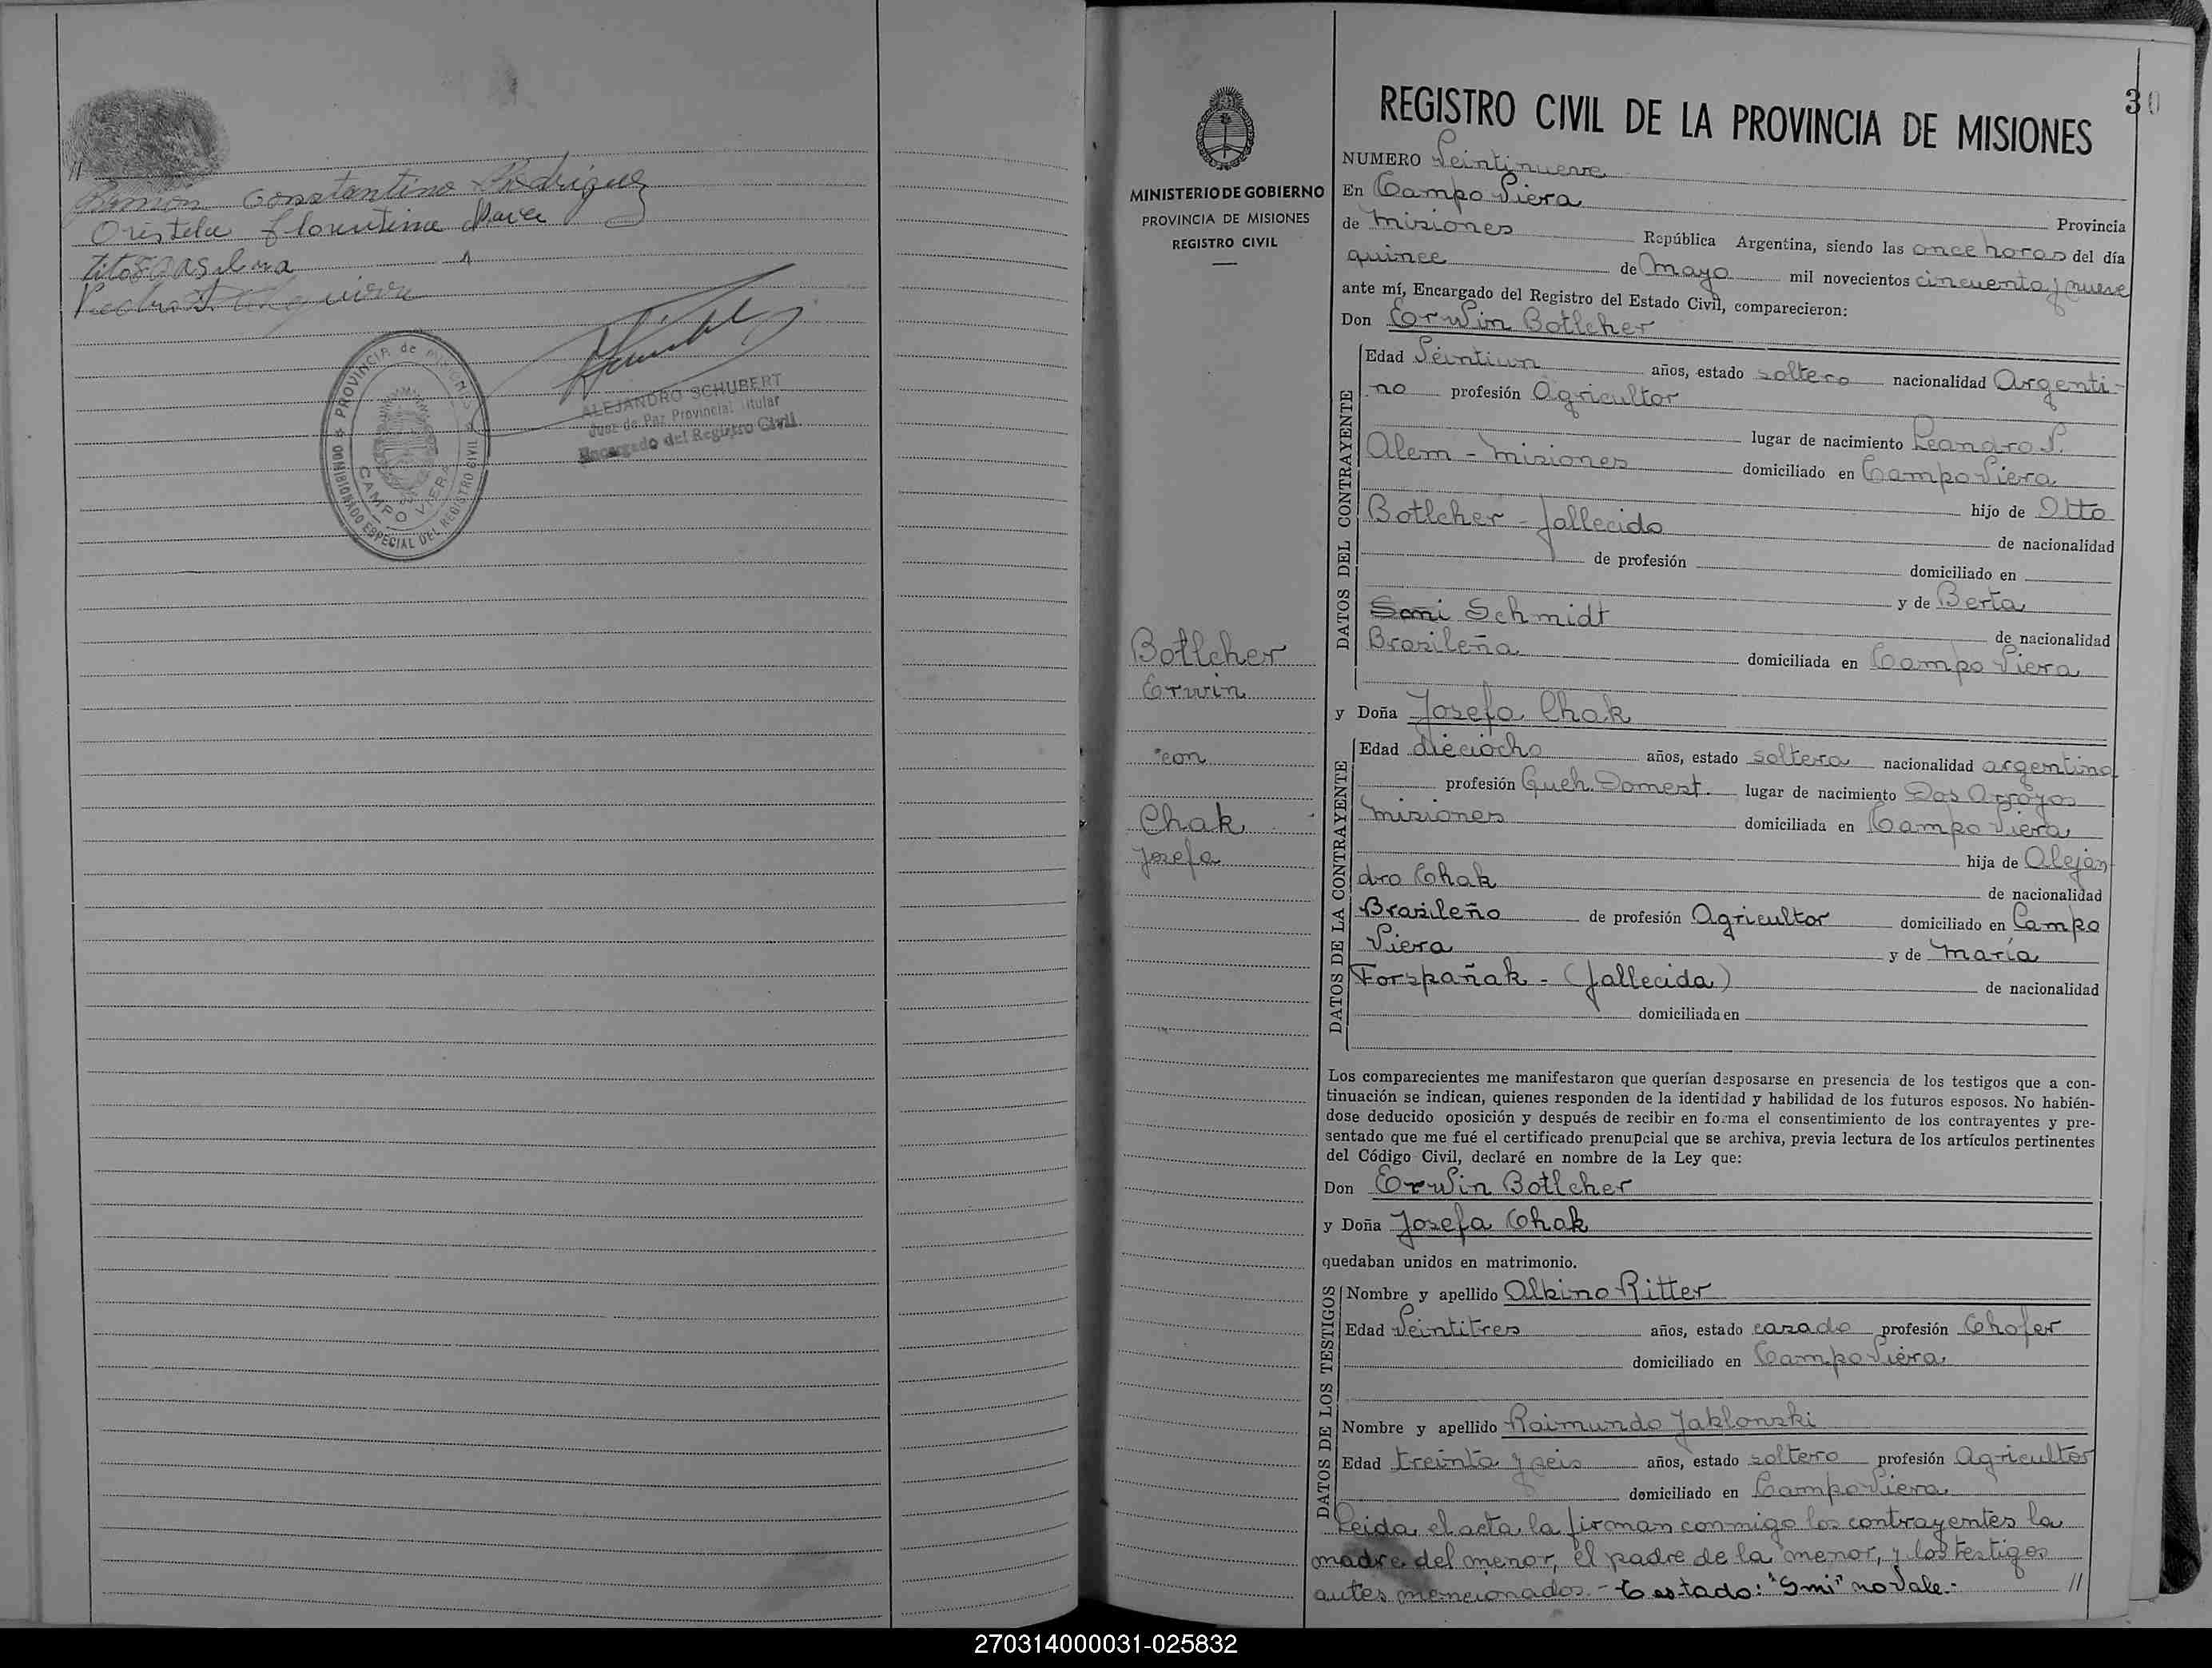 Ramón Constantino Rodriguez
Oristela florentina
Tito
Pedro
PROVINCIA de MISIONES
COMISIONADO ESPECIAL DEL REGISTRO CIVIL
CAMPO VIERA
ALEJANDRO SCHUBERT
Juez de Paz Provincial Titular
Encargado del Registro Civil
MINISTERIO DE GOBIERNO
PROVINCIA DE MISIONES
REGISTRO CIVIL
Botlcher
Erwin
con
Chak
Josefa
30
REGISTRO CIVIL DE LA PROVINCIA DE MISIONES
NUMERO Veintinueve
En Campo Viera Provincia
de Misiones República Argentina, siendo las once horas del día
quince de Mayo mil novecientos cincuenta y nueve
ante mí, Encargado del Registro del Estado Civil, comparecieron:
Don Erwin Botlcher
DATOS DEL CONTRAYENTE
Edad Veintiun años, estado soltero nacionalidad Argenti-
no profesión Agricultor
lugar de nacimiento Leandro N.
Alem - Misiones domiciliado en Campo Viera
hijo de Otto
Botlcher - fallecido de nacionalidad
de profesión domiciliado en
y de Berta
Smi Schmidt de nacionalidad
Brasileña domiciliada en Campo Viera
y Doña Josefa Chak
DATOS DE LA CONTRAYENTE
Edad dieciocho años, estado soltera nacionalidad argentina
profesión Queh. Domest. lugar de nacimiento Dos Arroyos
Misiones domiciliada en Campo Viera
hija de Alejan
dro Chak de nacionalidad
Brasileño de profesión Agricultor domiciliado en Campo
Viera y de María
Forspañak - (fallecida) de nacionalidad
domiciliada en
Los comparecientes me manifestaron que querían desposarse en presencia de los testigos que a con-
tinuación se indican, quienes responden de la identidad y habilidad de los futuros esposos. No habién-
dose deducido oposición y después de recibir en forma el consentimiento de los contrayentes y pre-
sentado que me fué el certificado prenupcial que se archiva, previa lectura de los artículos pertinentes
del Código Civil, declaré en nombre de la Ley que:
Don Erwin Botlcher
y Doña Josefa Chak
quedaban unidos en matrimonio.
DATOS DE LOS TESTIGOS
Nombre y apellido Albino Ritter
Edad Veintitres años, estado casado profesión Chofer
domiciliado en Campo Viera
Nombre y apellido Raimundo Jablonski
Edad treinta y seis años, estado soltero profesión Agricultor
domiciliado en Campo Viera
Leida el acta la firman conmigo los contrayentes la
madre del menor, el padre de la menor, y los testigos
antes mencionados. - Testado: "Smi" no Vale.- //
270314000031-025832